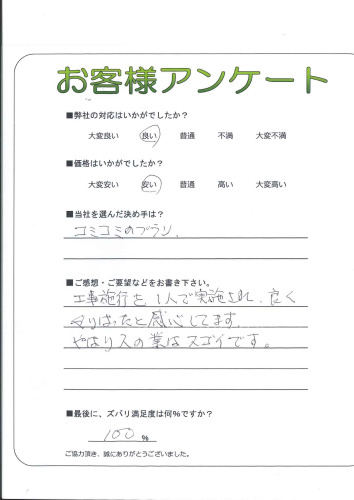 お客様アンケート
■弊社の対応はいかがでしたか?
大変良い 良い 普通 不満 大変不満
■価格はいかがでしたか?
大変安い 安い 普通 高い 大変高い
■当社を選んだ決め手は?
コミコミのプラン、
■ご感想・ご要望などをお書き下さい。
工事施行を、1人で実施され、良く
やりはったと感心してます。
やはり人の業はスゴイです。
■最後に、ズバリ満足度は何%ですか?
100 %
ご協力頂き、誠にありがとうございました。